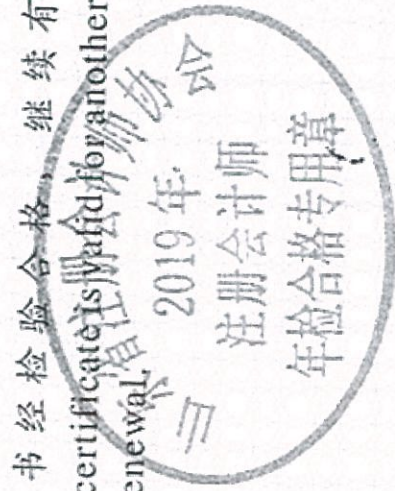 书经检验合格，继续有
certificate is valid for another
enewal.
山东省注册会计师协会
2019年
注册会计师
年检合格专用章